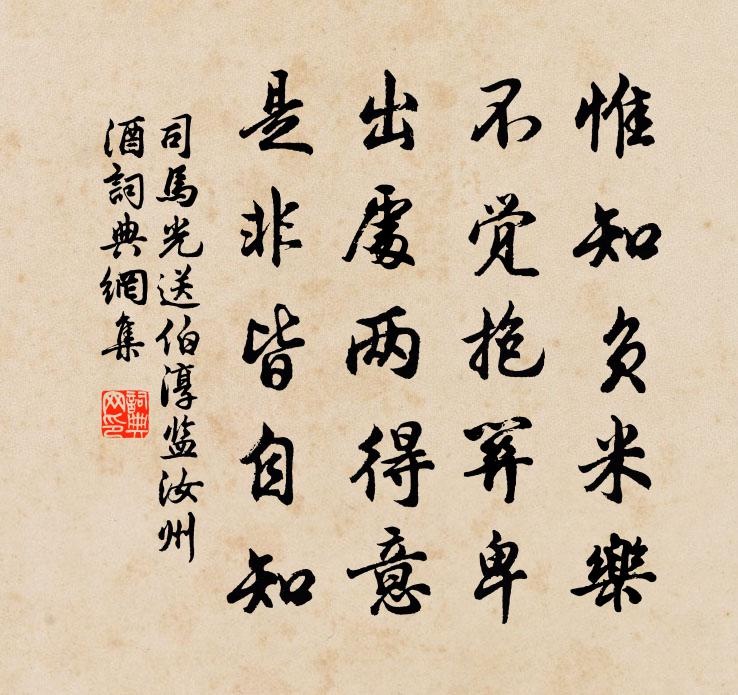 惟知负米樂
不觉抱關卑
出處两得意
是非皆自知
司馬光送伯淳监汝州
酒詞典網集
詞典
网印